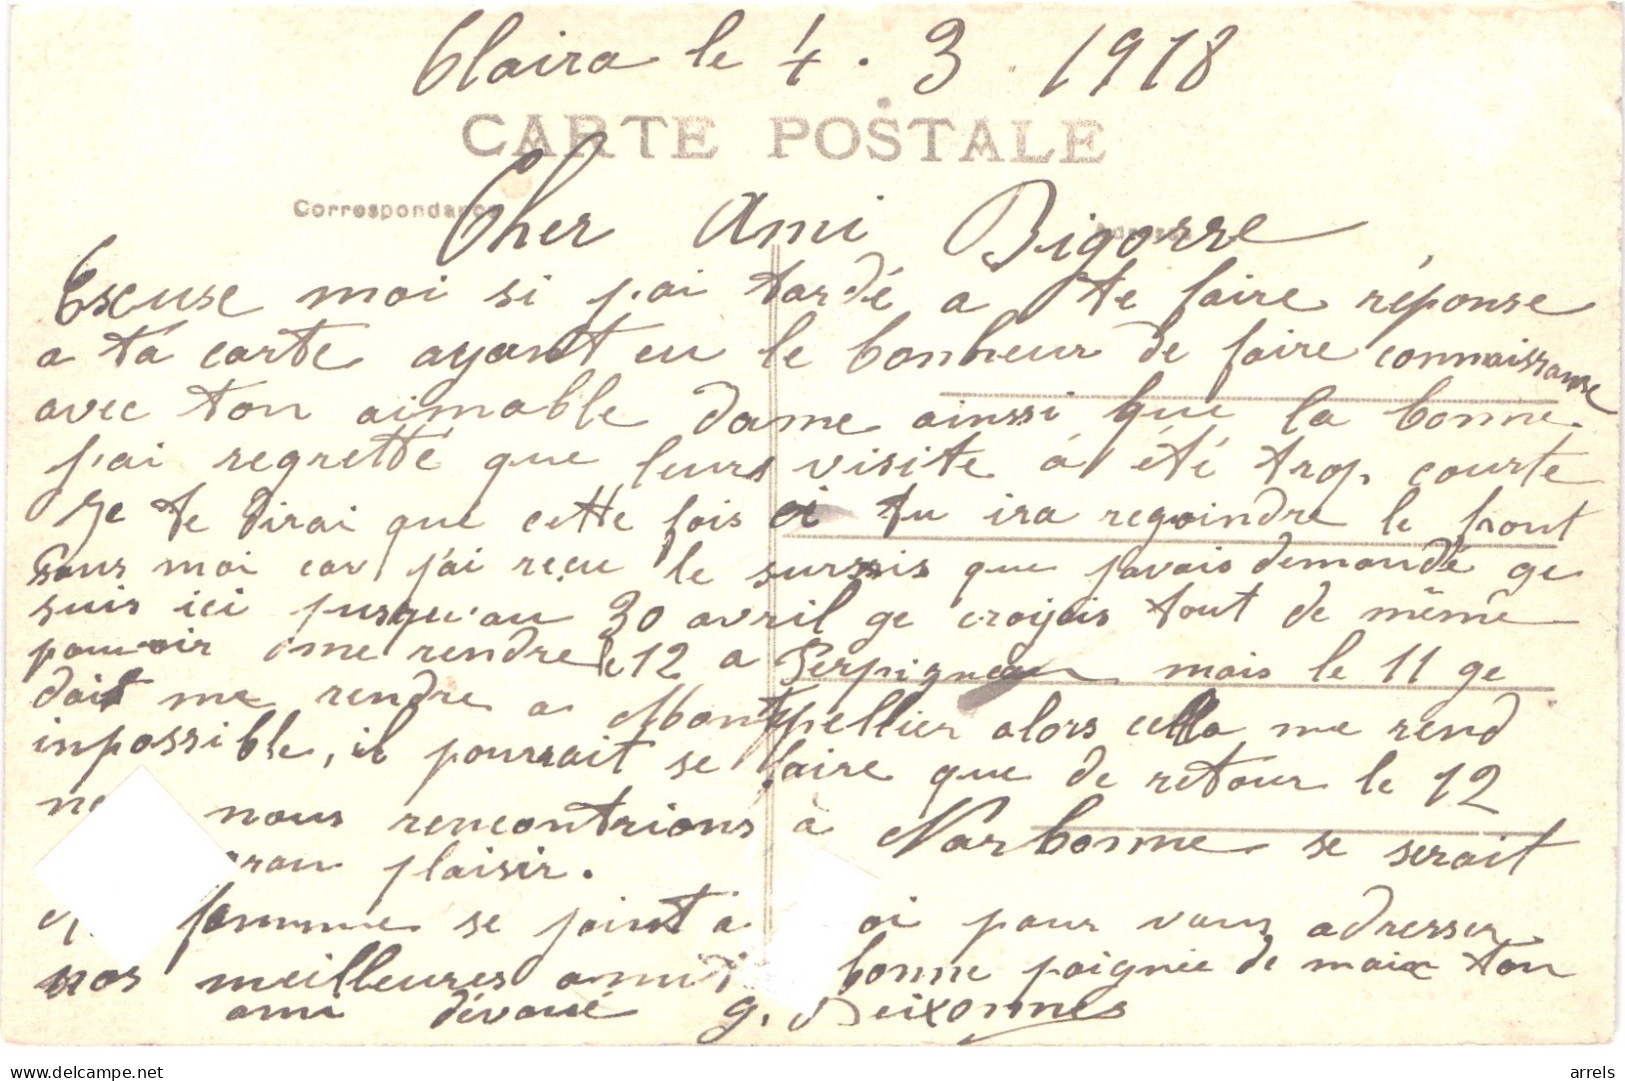 Claira le 4 . 3 . 1918
CARTE POSTALE
Correspondance
Cher Ami Bigorre
Escuse moi si j'ai tardé a te faire réponse
a ta carte ayant eu le bonheur de faire connaissanse
avec ton aimable dame ainsi que la bonne
j'ai regretté que leurs visite à été trop courte
Je te dirai que cette fois ci tu ira regoindre le front
sans moi car j'ai recu le sursis que j'avais demandé ge
suis ici jusqu'au 30 avril ge croyais tout de même
pouvoir me rendre le 12 a Perpignan mais le 11 ge
dois me rendre a Montpellier alors cella me rend
inpossible, il pourrait se faire que de retour le 12
nous rencontrions à Narbonne se serait
gran plaisir.
femme se joint a moi pour vous adresser
nos meilleures bonne poignée de main ton
ami dévoué G. Deixonnes
delcampe.net
arrels